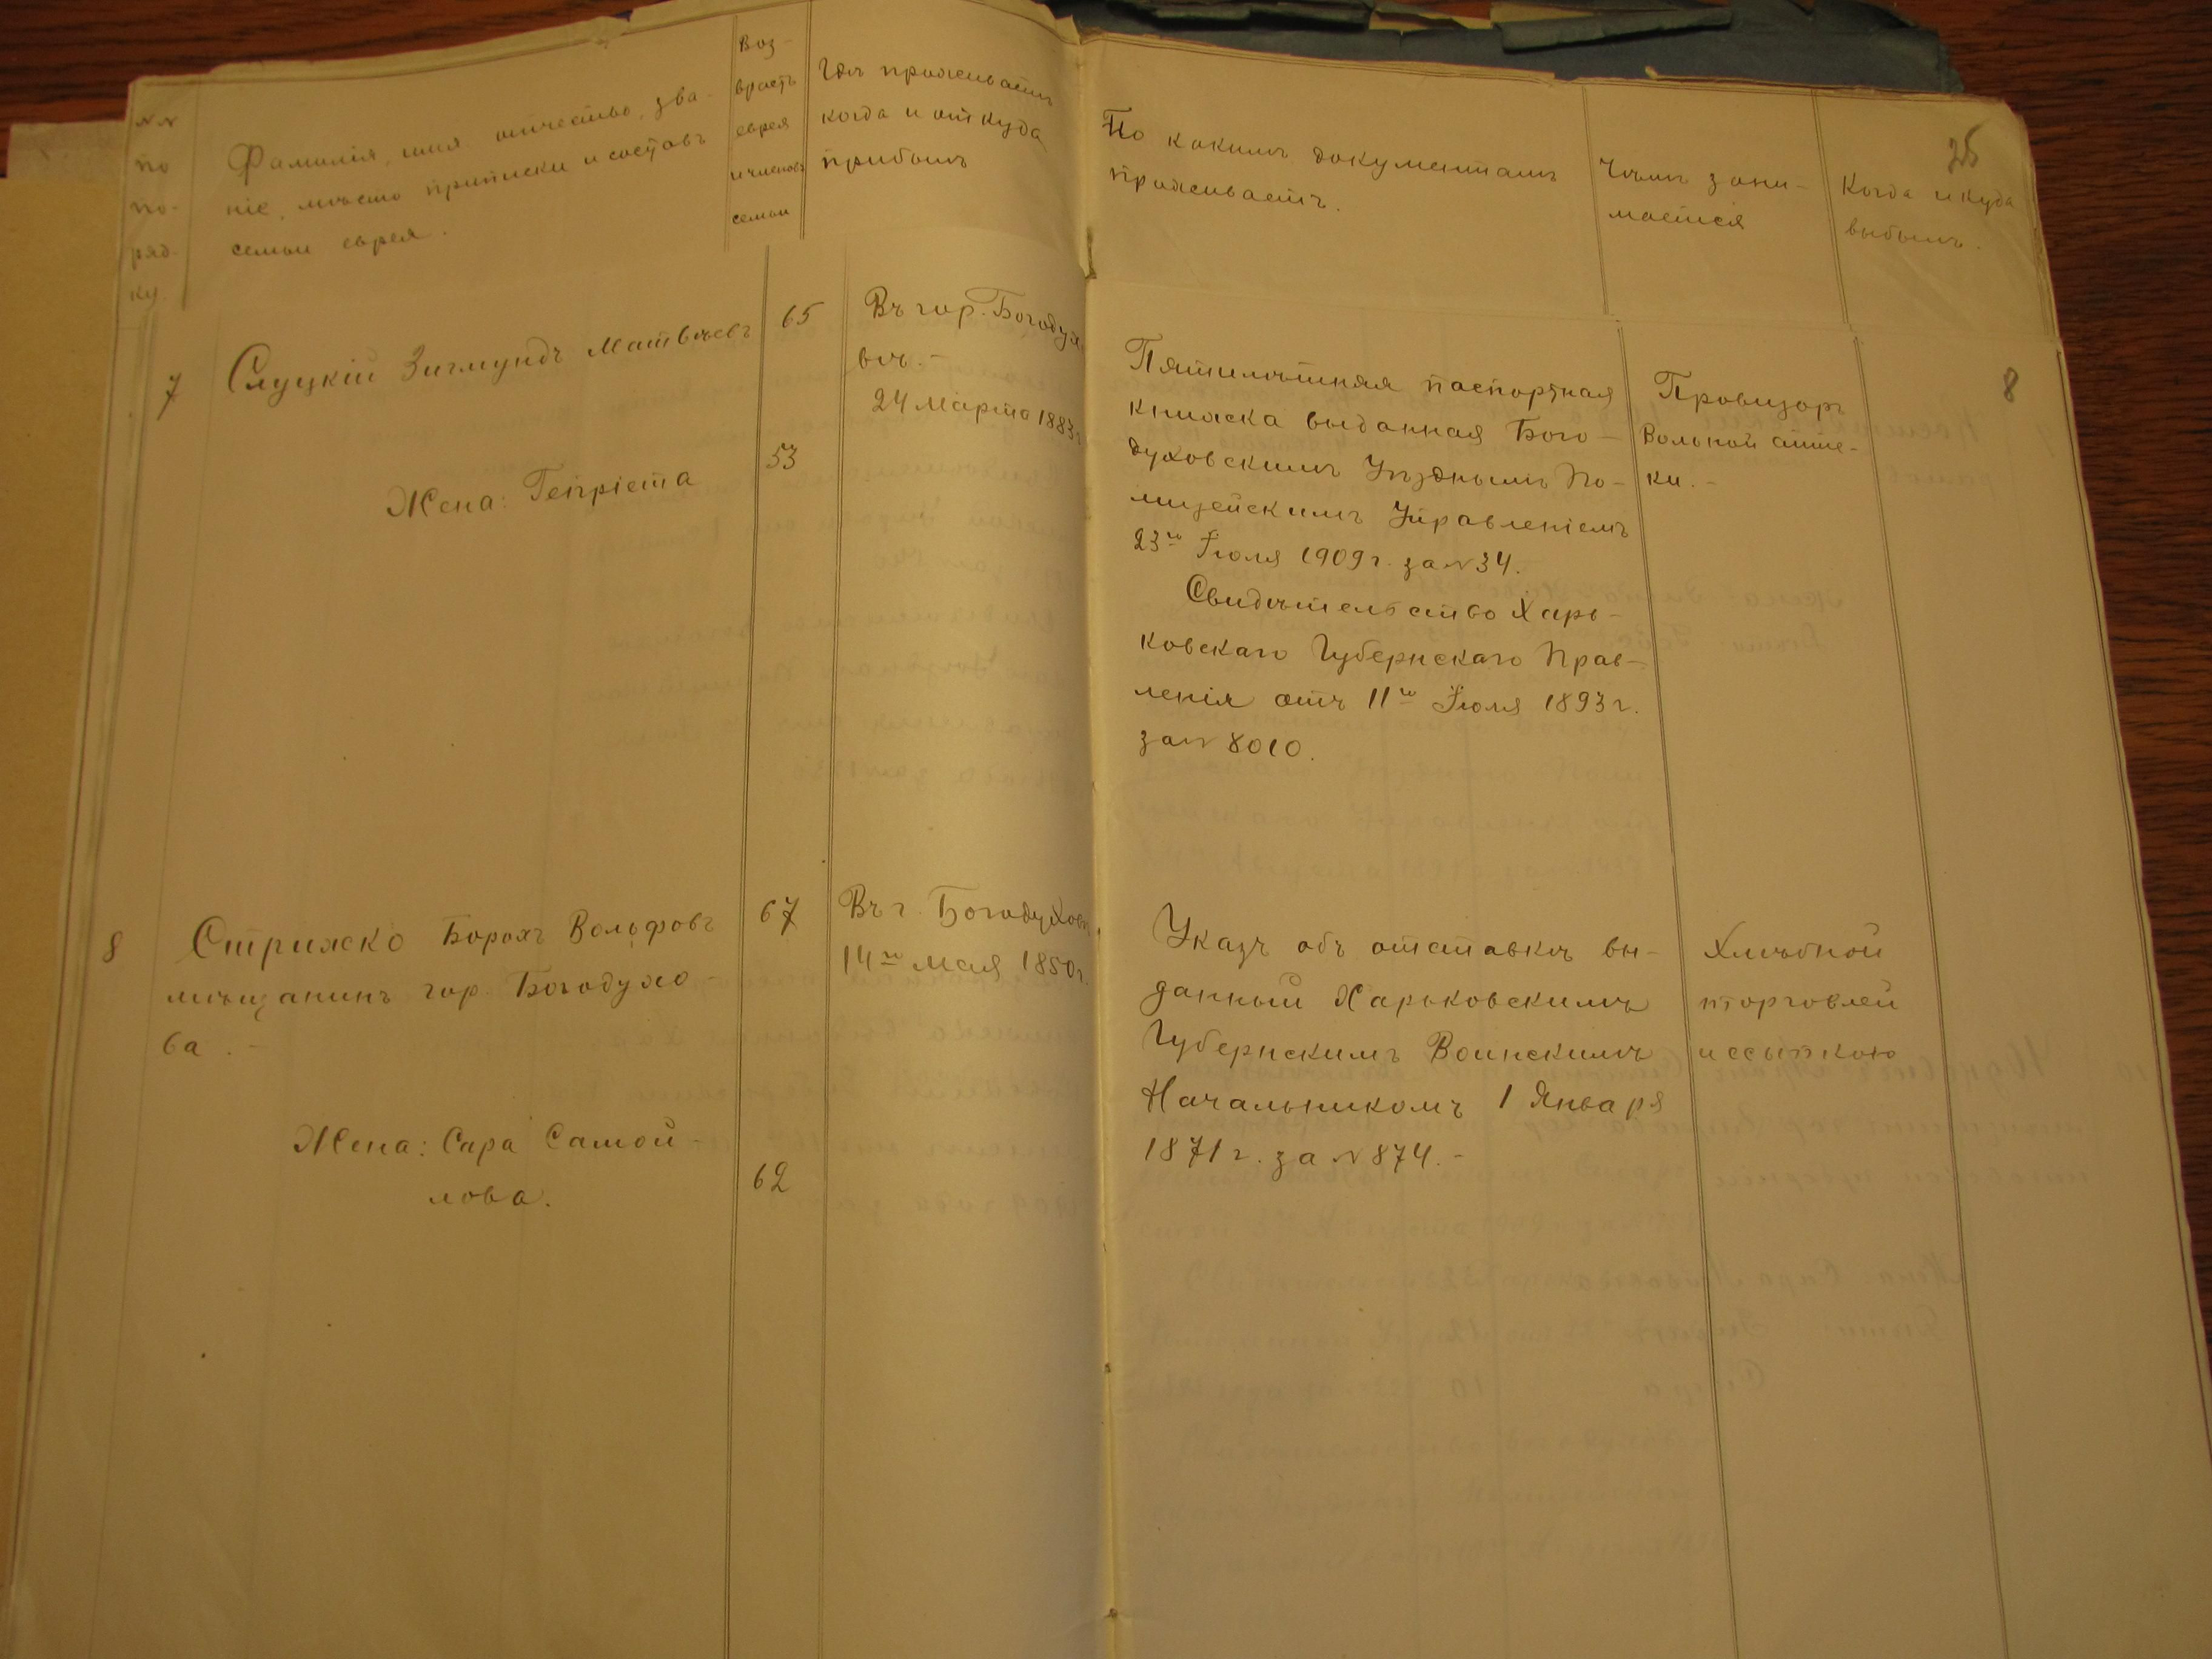 №№
по
по-
ряд-
ку.
Фамилія, имя отчество, зва-
ніе, мѣсто приписки и составъ
семьи еврея.
Воз-
врастъ
еврея
и членовъ
семьи
Гдѣ проживаетъ
когда и откуда
прибылъ
По какимъ документамъ
проживаетъ.
Чѣмъ зани-
мается
Когда и куда
выбылъ.
25
7
Слуцкій Зигмундъ Матвѣевъ
65
Въ гор. Богодухо
вѣ.-
24 Марта 1883г
Жена: Генріета
53
Пятилѣтняя паспортная
книжка выданная Бого-
духовскимъ Уѣзднымъ По-
лицейскимъ Управленіемъ
23го Іюля 1909г. за №34.
Свидѣтельство Харь-
ковскаго Губернскаго Прав-
ленія отъ 11го Іюля 1893г.
за № 8010.
Провизоръ
Вольной апте-
ки.-
8
8
Стрижско Борохъ Вольфовъ
мѣщанинъ гор. Богодухо-
ва.-
67
Въ г. Богодуховѣ
14го мая 1850г.
Жена: Сара Самой-
лова.
62
Указъ объ отставкѣ вы-
данный Харьковскимъ
Губернскимъ Воинскимъ
Начальникомъ 1 Января
1871г. за №874.-
Хлѣбной
торговлей
и ссыпкою